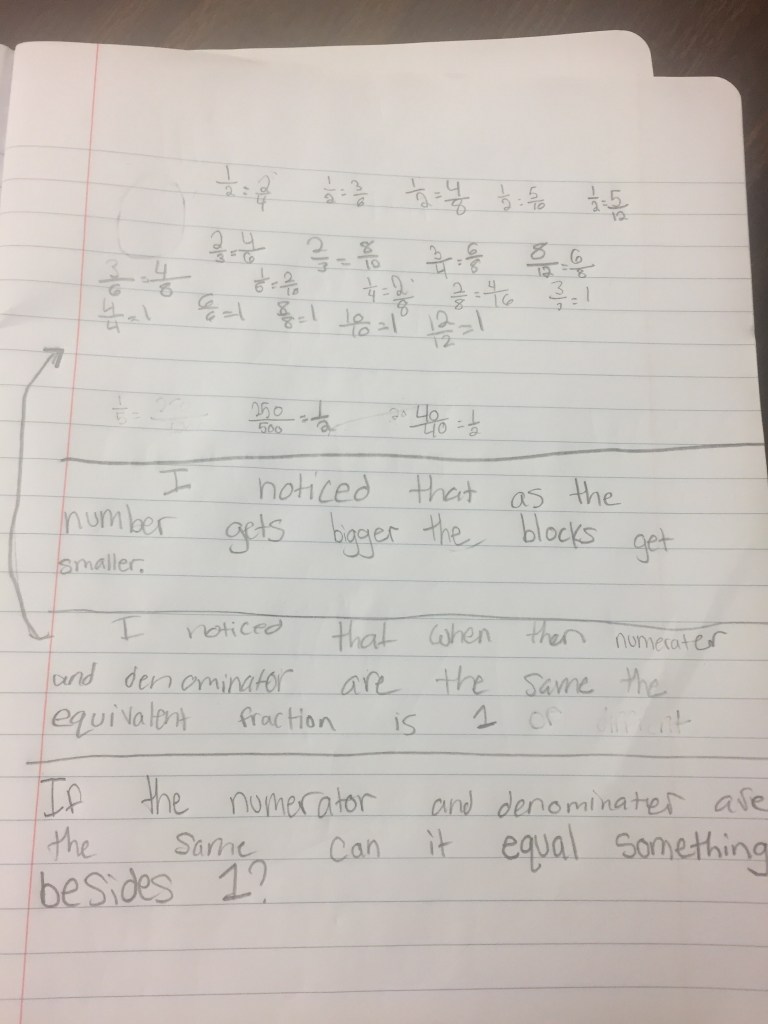 1/2 = 2/4 1/2 = 3/6 1/2 = 4/8 1/2 = 5/10 1/2 = 5/12
2/3 = 4/6 2/3 = 8/10 3/4 = 6/8 8/12 = 6/8
3/6 = 4/8 1/5 = 2/10 1/4 = 2/8 2/8 = 4/16 3/3 = 1
4/4 = 1 6/6 = 1 8/8 = 1 10/10 = 1 12/12 = 1
250/500 = 1/2 40/40 = 1/2
I noticed that as the
number gets bigger the blocks get
smaller.
I noticed that when then numerater
and denominator are the same the
equivalent fraction is 1 or
If the numerator and denominater are
the same can it equal something
besides 1?